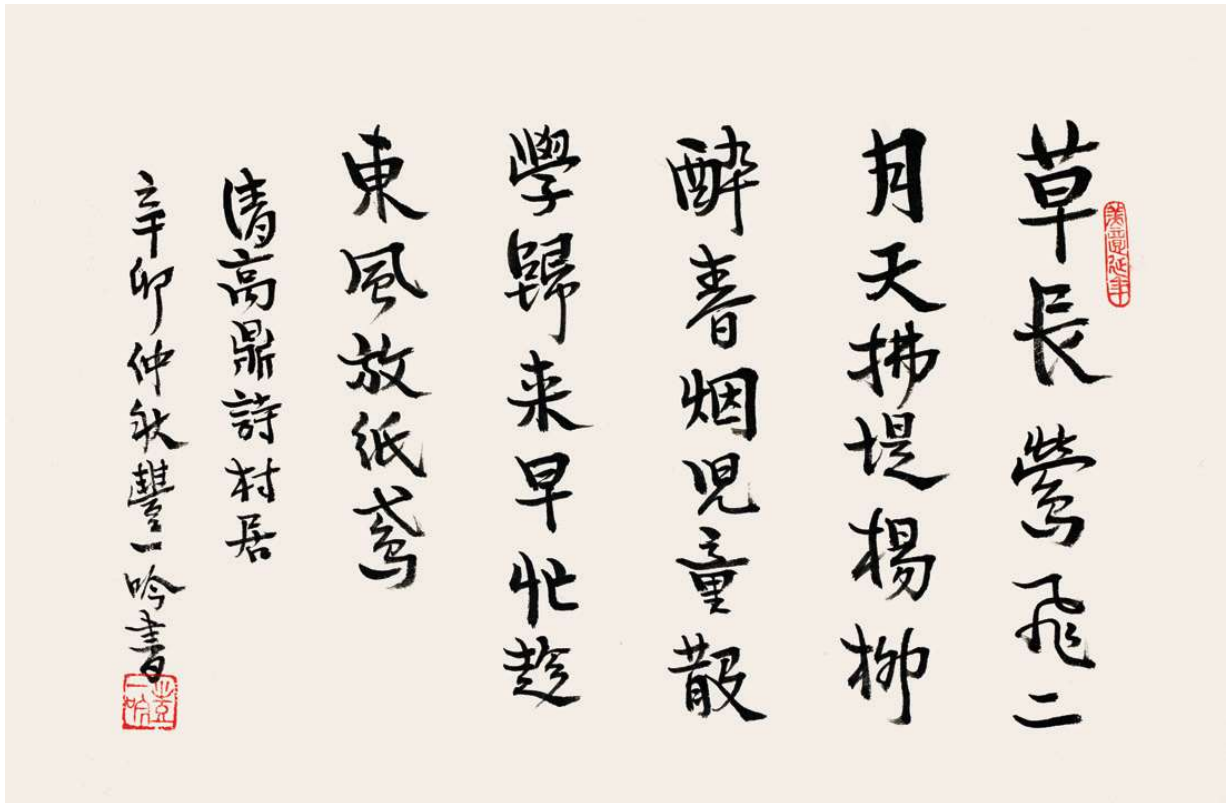 草長鶯飛二
月天拂堤楊柳
醉春烟児童散
學歸来早忙趁
東風放紙鳶
清高鼎詩村居
辛卯仲秋豐一吟書
美意延年
豐一吟